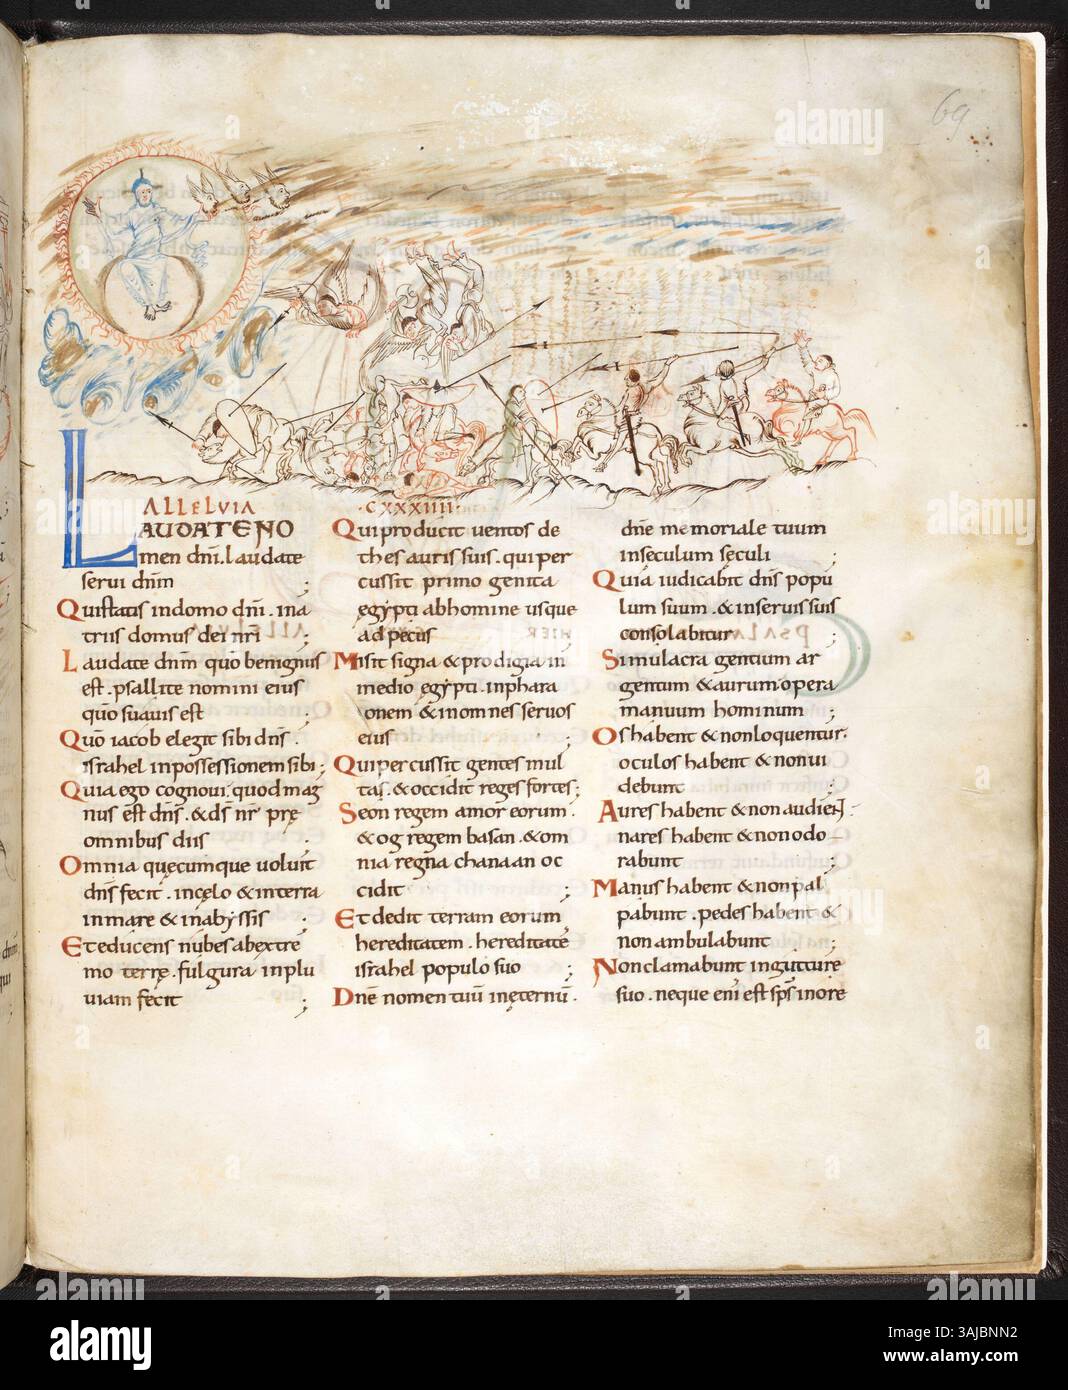 69
ALLELVIA
·CXXXIIII·
LAUDATE NO
men dnī. laudate
serui dnm̄ ;
Qui statis indomo dnī. ina
triis domus dei nr̄i ;
Laudate dnm̄ quō benignus
est. psallite nomini eius
quō suauis est ;
Quō iacob elegit sibi dnś.
israhel inpossessionem sibi ;
Quia ego cognoui. quod mag
nus est dnś. & dś nr̄ prę
omnibus diis ;
Omnia quęcumque uoluit
dnś fecit. incęlo & interra
inmare & inabyssis ;
Et educens nubes abextre
mo terrę. fulgura inplu
uiam fecit ;
Qui producit uentos de
thesauris suis. qui per
cussit primogenita
egypti abhomine usque
ad pecus ;
Misit signa & prodigia in
medio egypti. inphara
onem & inomnes seruos
eius ;
Qui percussit gentes mul
tas. & occidit reges fortes ;
Seon regem amorreorum.
& og regem basan. & om
nia regna chanaan oc
cidit ;
Et dedit terram eorum
hereditatem. hereditatē
israhel populo suo ;
Dnē nomen tuū inęternū.
dnē memoriale tuum
inseculum seculi ;
Quia iudicabit dnś popu
lum suum. & inseruis suis
consolabitur ;
Simulacra gentium ar
gentum & aurum. opera
manuum hominum ;
Os habent & nonloquentur.
oculos habent & nonui
debunt ;
Aures habent & non audient.
nares habent & nonodo
rabunt ;
Manus habent & nonpal
pabunt. pedes habent &
nonambulabunt ;
Nonclamabunt ingutture
suo. neque enī est spś inore
alamy
Image ID: 3AJBNN2
www.alamy.com